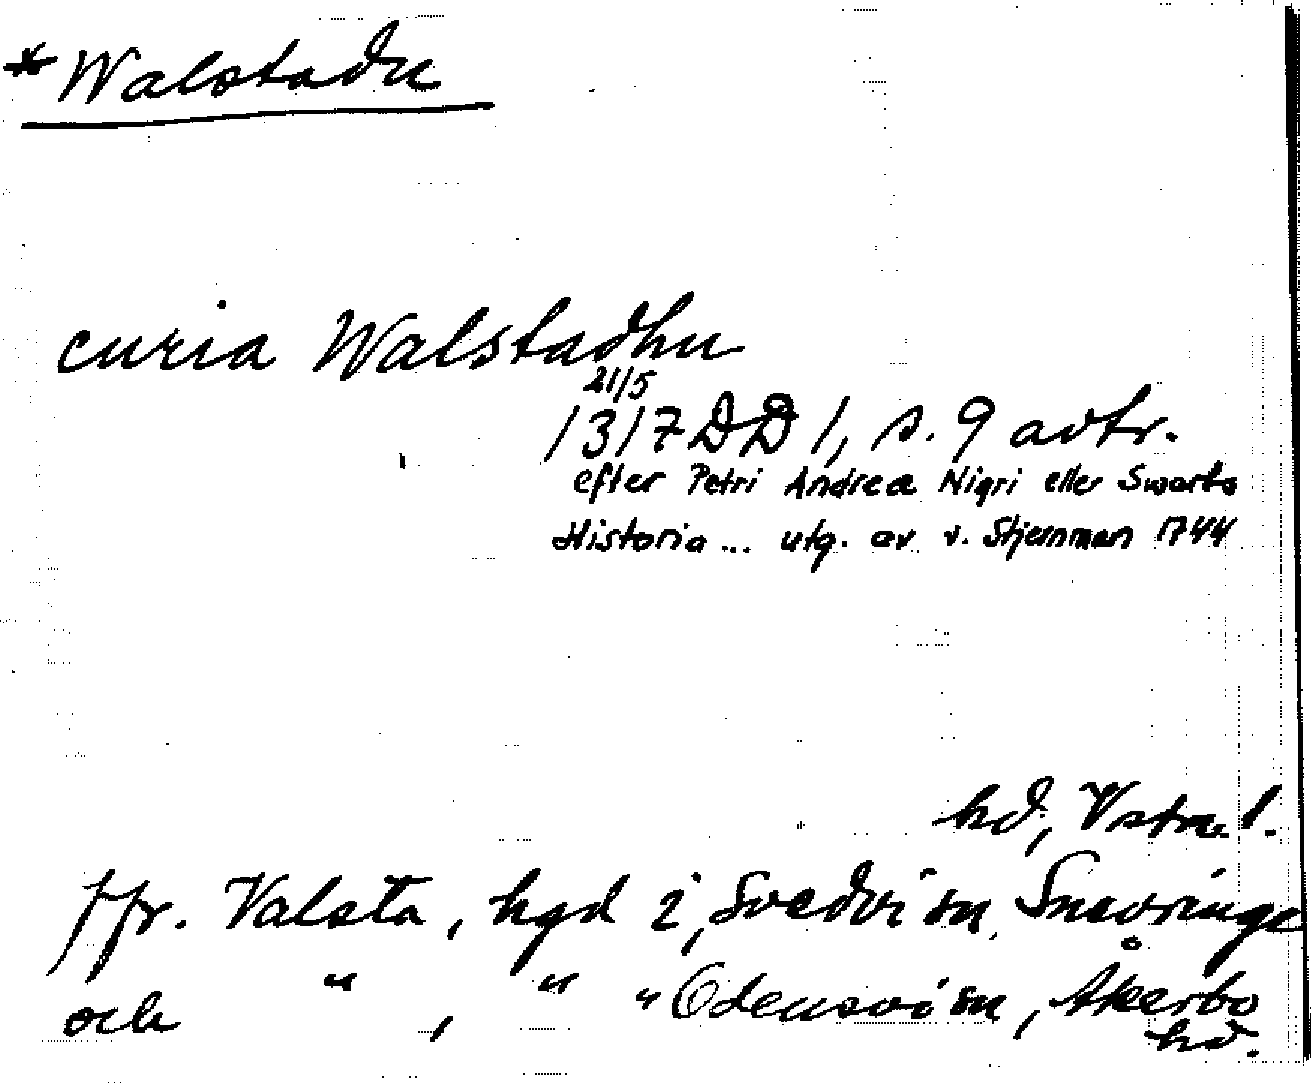 *Walstadu
curia Walstadhu
21/5
1317 DD 1, s. 9 avtr.
efter Petri Andreæ Nigri eller Swarts
Historia ... utg. av v. Stjernman 1744
hd, Vstm. l.
Jfr. Valsta, hgd i, Svedvi sn, Snevringe
och " , " " Odensvi sn, Åkerbo
hd.